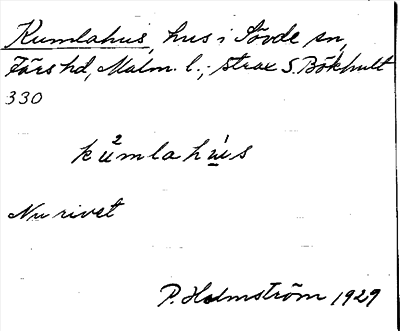 Kumlahus, hus i Sövde sn,
Färs hd, Malm. l.; strax S. Bökhult
330
kù²mlahú̲s
Nu rivet
P. Holmström 1929